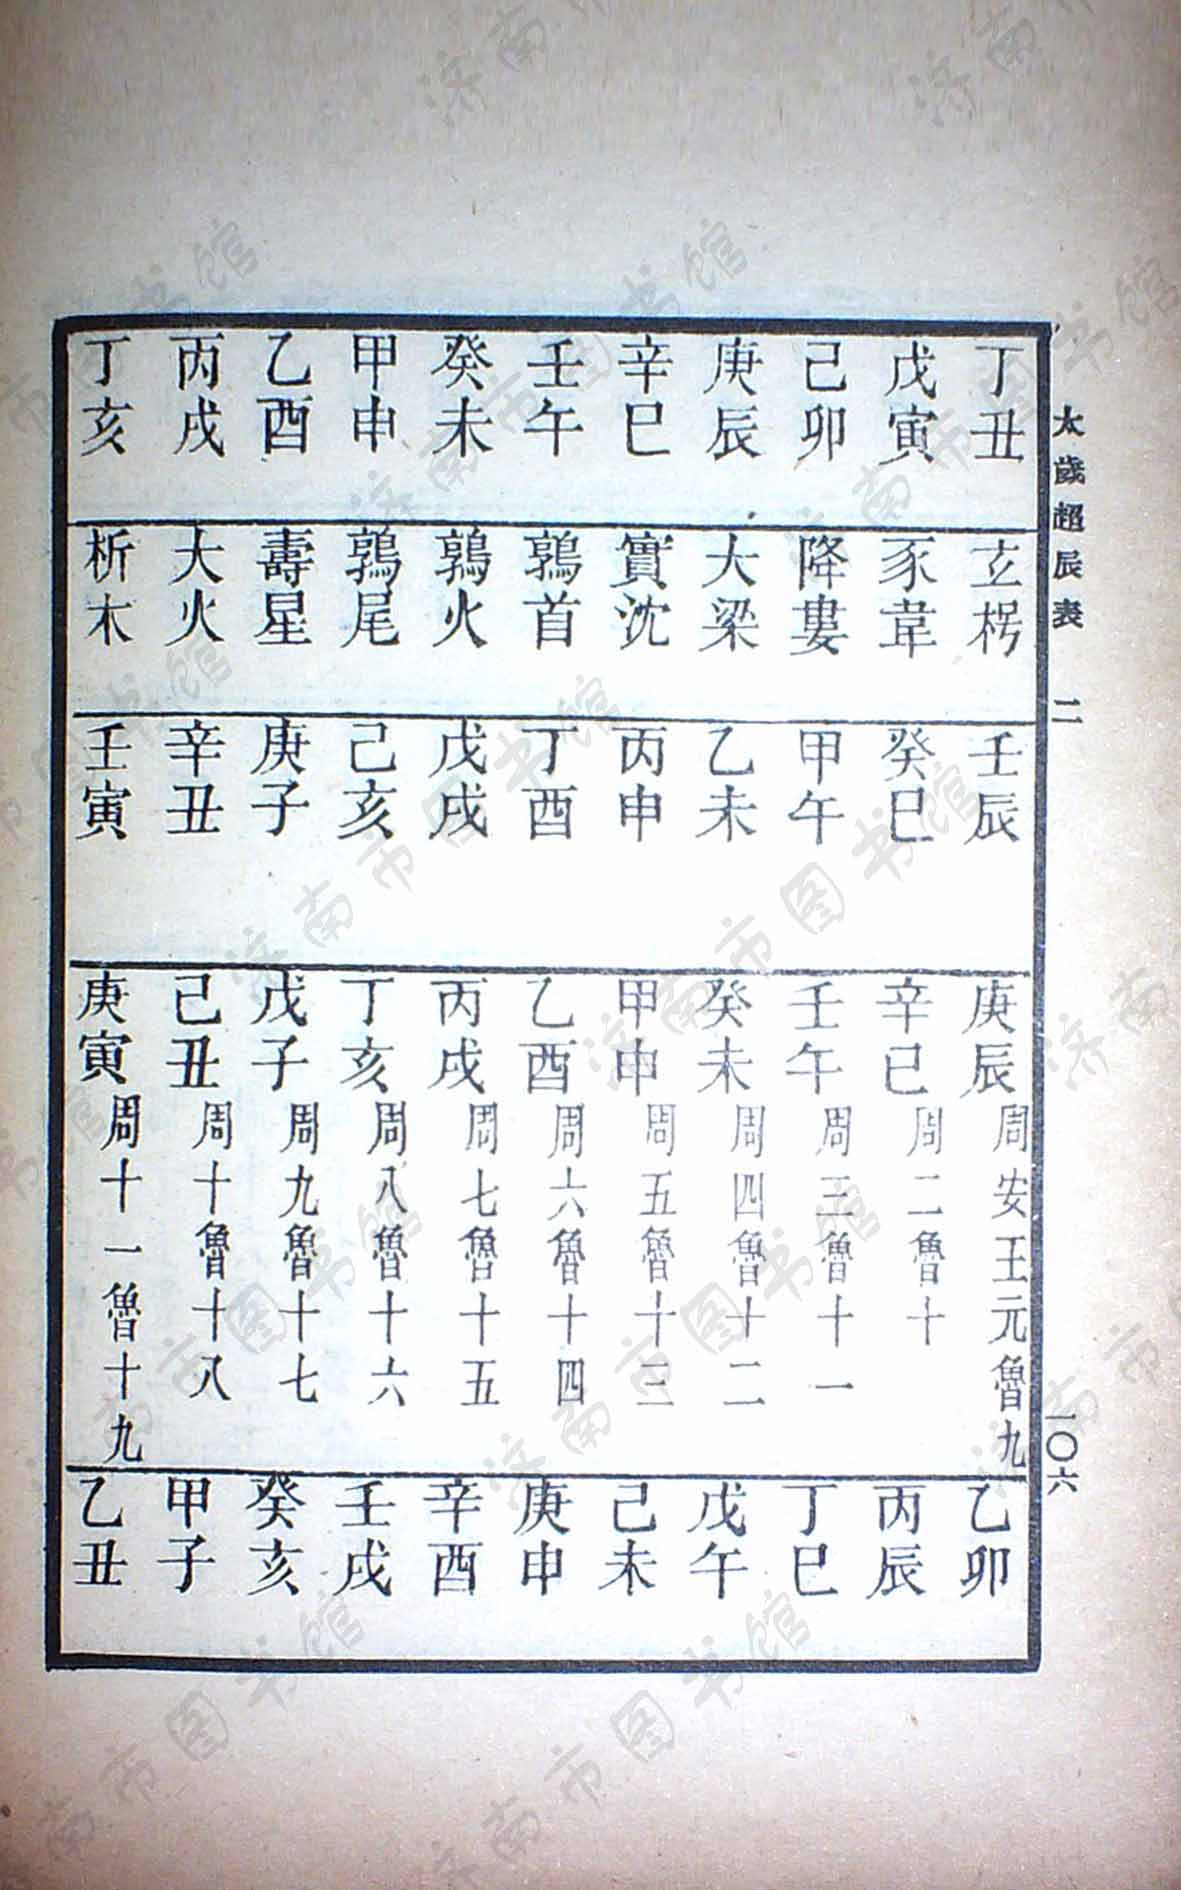 太歲超辰表 二 一〇六
丁丑 玄枵 壬辰 庚辰周安王元魯九 乙卯
戊寅 豕韋 癸巳 辛巳周二魯十 丙辰
己卯 降婁 甲午 壬午周三魯十一 丁巳
庚辰 大梁 乙未 癸未周四魯十二 戊午
辛巳 實沈 丙申 甲申周五魯十三 己未
壬午 鶉首 丁酉 乙酉周六魯十四 庚申
癸未 鶉火 戊戌 丙戌周七魯十五 辛酉
甲申 鶉尾 己亥 丁亥周八魯十六 壬戌
乙酉 壽星 庚子 戊子周九魯十七 癸亥
丙戌 大火 辛丑 己丑周十魯十八 甲子
丁亥 析木 壬寅 庚寅周十一魯十九 乙丑
济南市图书馆